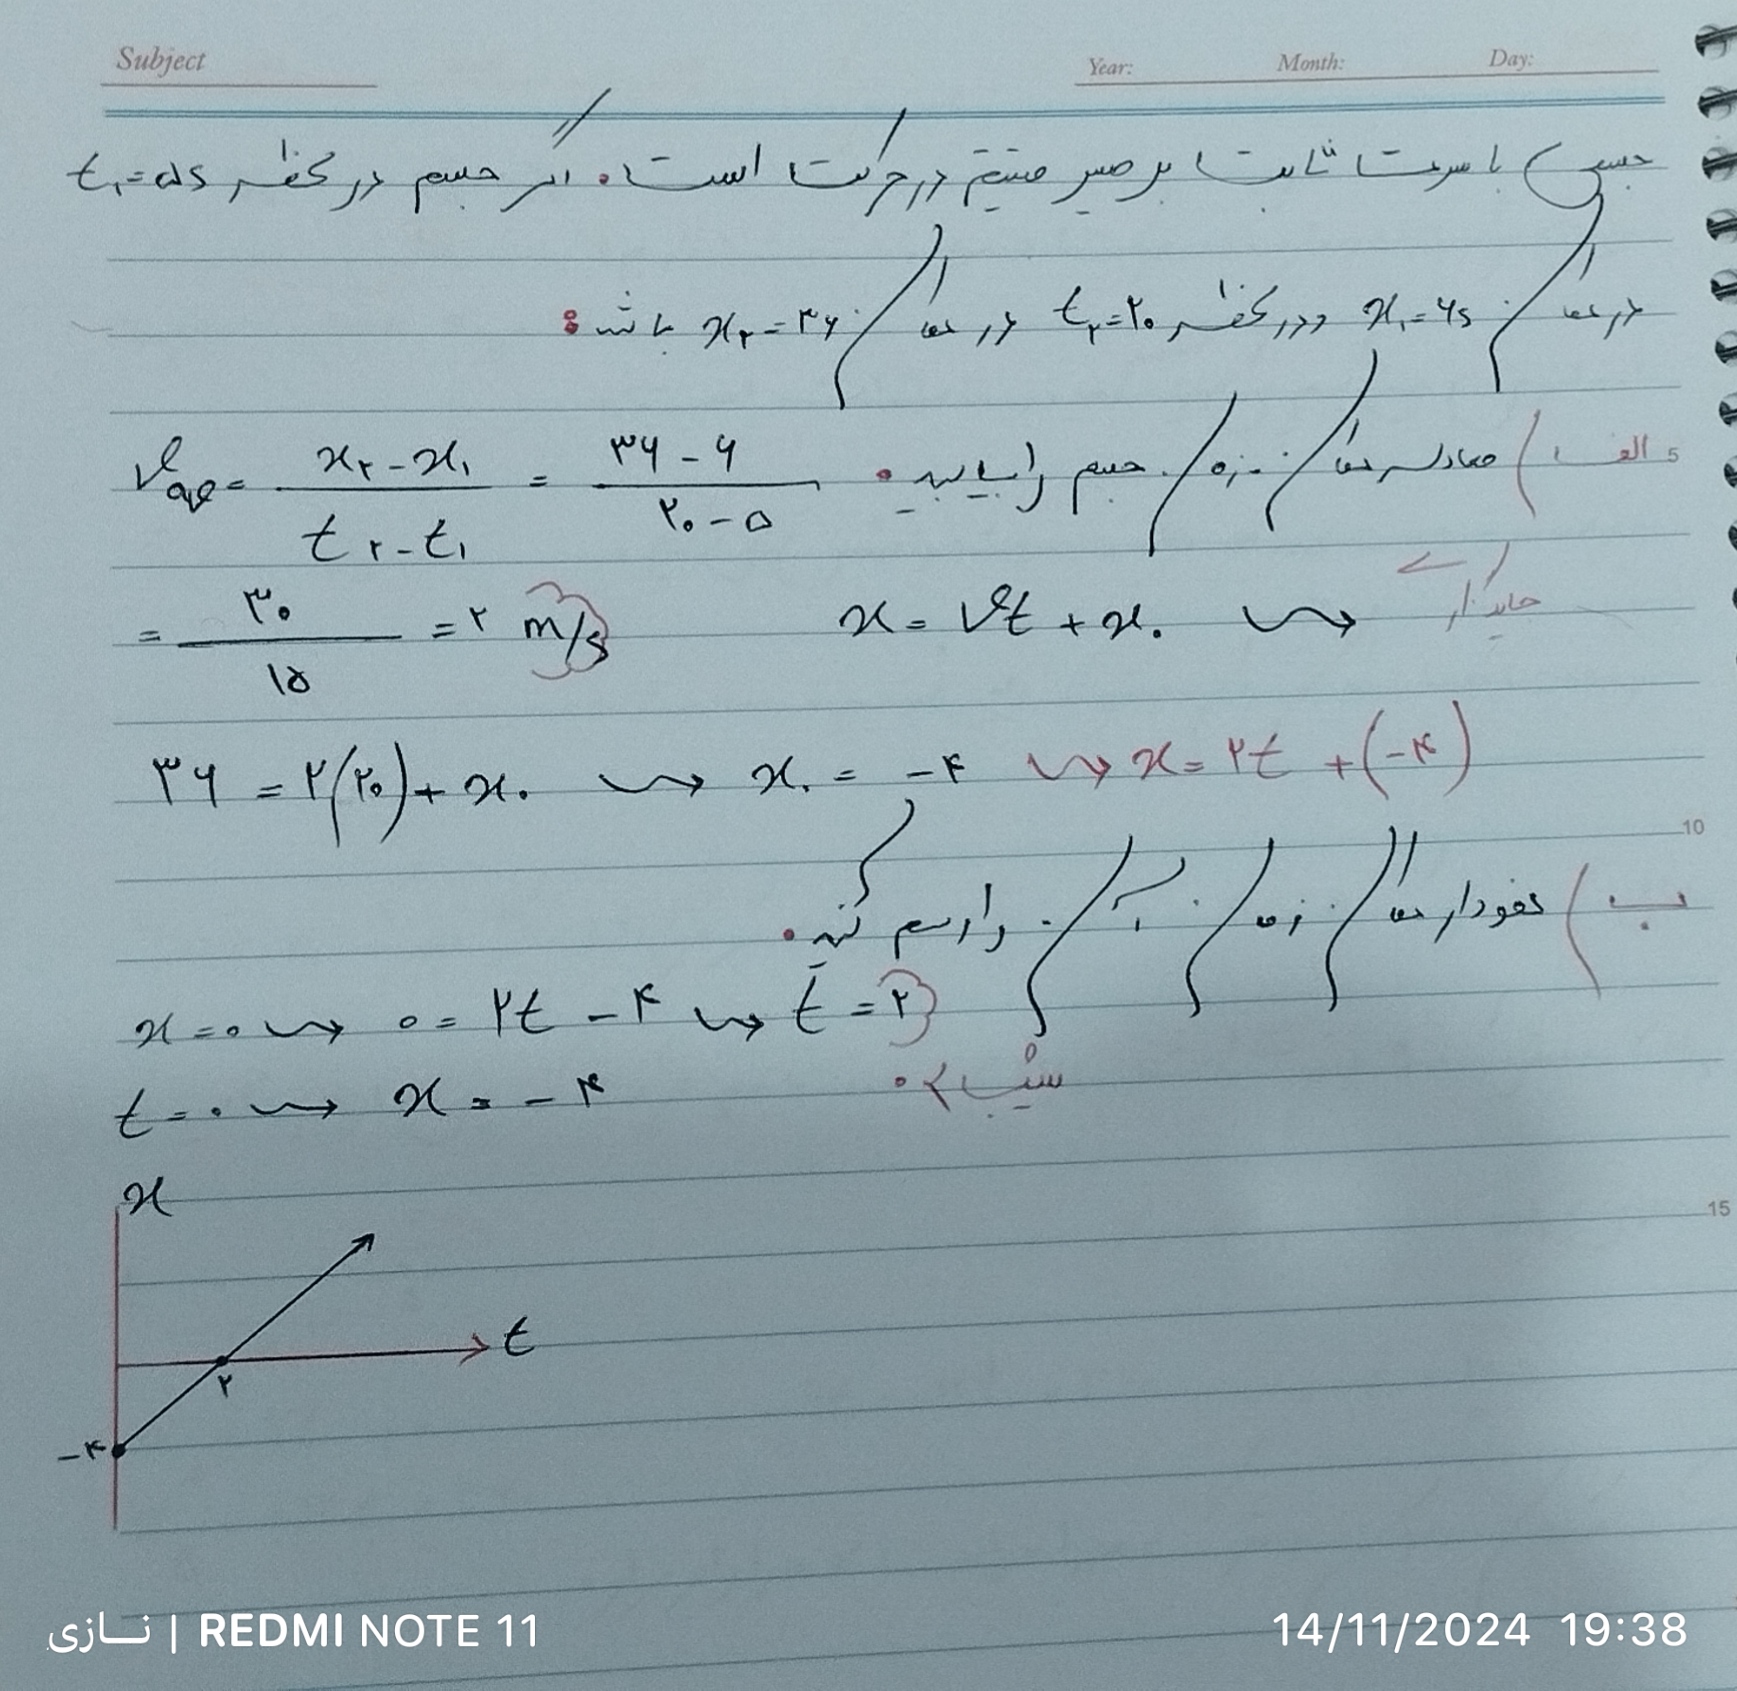 Subject Year: Month: Day:
جسمی با سرعت ثابت بر مسیر مستقیم در حرکت است. اگر جسم در لحظه t₁=۵s
در مکان x₁=۶s و در لحظه t₂=۲۰ در مکان x₂=۳۶ باشد:
5 الف) معادله مکان زمان جسم را بیابید.
Vav = x₂-x₁ / t₂-t₁ = ۳۶-۶ / ۲۰-۵
= ۳۰ / ۱۵ = ۲ m/s x = Vt + x₀ ⇝ جایگذاری
۳۶ = ۲(۲۰)+x₀ ⇝ x₀ = -۴ ⇝ x = ۲t + (-۴)
10
ب) نمودار مکان زمان را رسم کنید.
x=۰ ⇝ ۰ = ۲t - ۴ ⇝ t = ۲
t=۰ ⇝ x = -۴ شیب ۲.
x
15
t
۲
-۴
نــازی | REDMI NOTE 11 14/11/2024 19:38